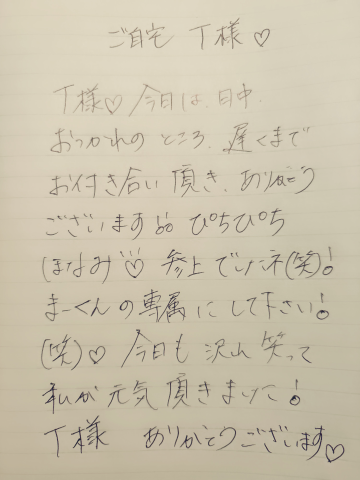 ご自宅 T様♡
T様♡今日は、日中、
おつかれのところ、遅くまで
お付き合い頂き、ありがとう
ございます!! ぴちぴち
ほなみ♡ 参上でしたネ(笑)!
まーくんの専属にして下さい!
(笑)♡ 今日も沢山笑って
私が元気頂きました!
T様 ありがとうございます♡